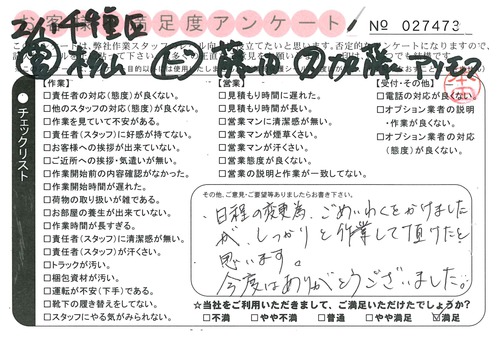 2/6 千種区
お客様満足度アンケート
No 027473
チェックリスト
【作業】
□責任者の対応(態度)が良くない。
□他のスタッフの対応(態度)が良くない。
□作業を見ていて不安がある。
□責任者(スタッフ)に好感が持てない。
□お客様への挨拶が出来ていない。
□ご近所への挨拶・気遣いが無い。
□作業開始前の内容確認がなかった。
□作業開始時間が遅れた。
□荷物の取り扱いが雑である。
□お部屋の養生が出来ていない。
□作業時間が長すぎる。
□責任者(スタッフ)に清潔感が無い。
□責任者(スタッフ)が汗くさい。
□トラックが汚い。
□梱包資材が汚い。
□運転が不安(下手)である。
□靴下の履き替えをしてない。
□スタッフにやる気がみられない。
【営業】
□見積もり時間に遅れた。
□見積もり時間が長い。
□営業マンに清潔感が無い。
□営業マンが煙草くさい。
□営業マンが汗くさい。
□営業態度が良くない。
□営業の説明と作業が一致してない。
【受付・その他】
□電話の対応が良くない。
□オプション業者の説明・作業が良くない。
□オプション業者の対応(態度)が良くない。
その他、ご意見・ご要望等ありましたらお書き下さい。
日程の変更為、ごめいわくをかけました
が、しっかりと作業して頂けたと
思います。
今度はありがとうございました。
☆当社をご利用いただきまして、ご満足いただけたでしょうか?
□不満 □やや不満 □普通 □やや満足 ☑満足